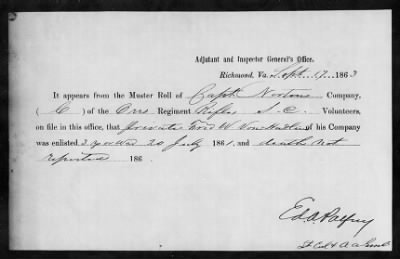 Adjutant and Inspector General's Office.
Richmond, Va. Sept. 17 1863
It appears from the Muster Roll of Capt. Nortons Company,
( C ) of the Orrs Regiment Rifles S. C. Volunteers,
on file in this office, that private W of his Company
was enlisted 20 July 1861, and death not
reported 186 .
Ed. A. Palfrey
Lt Col & A. A. Genl